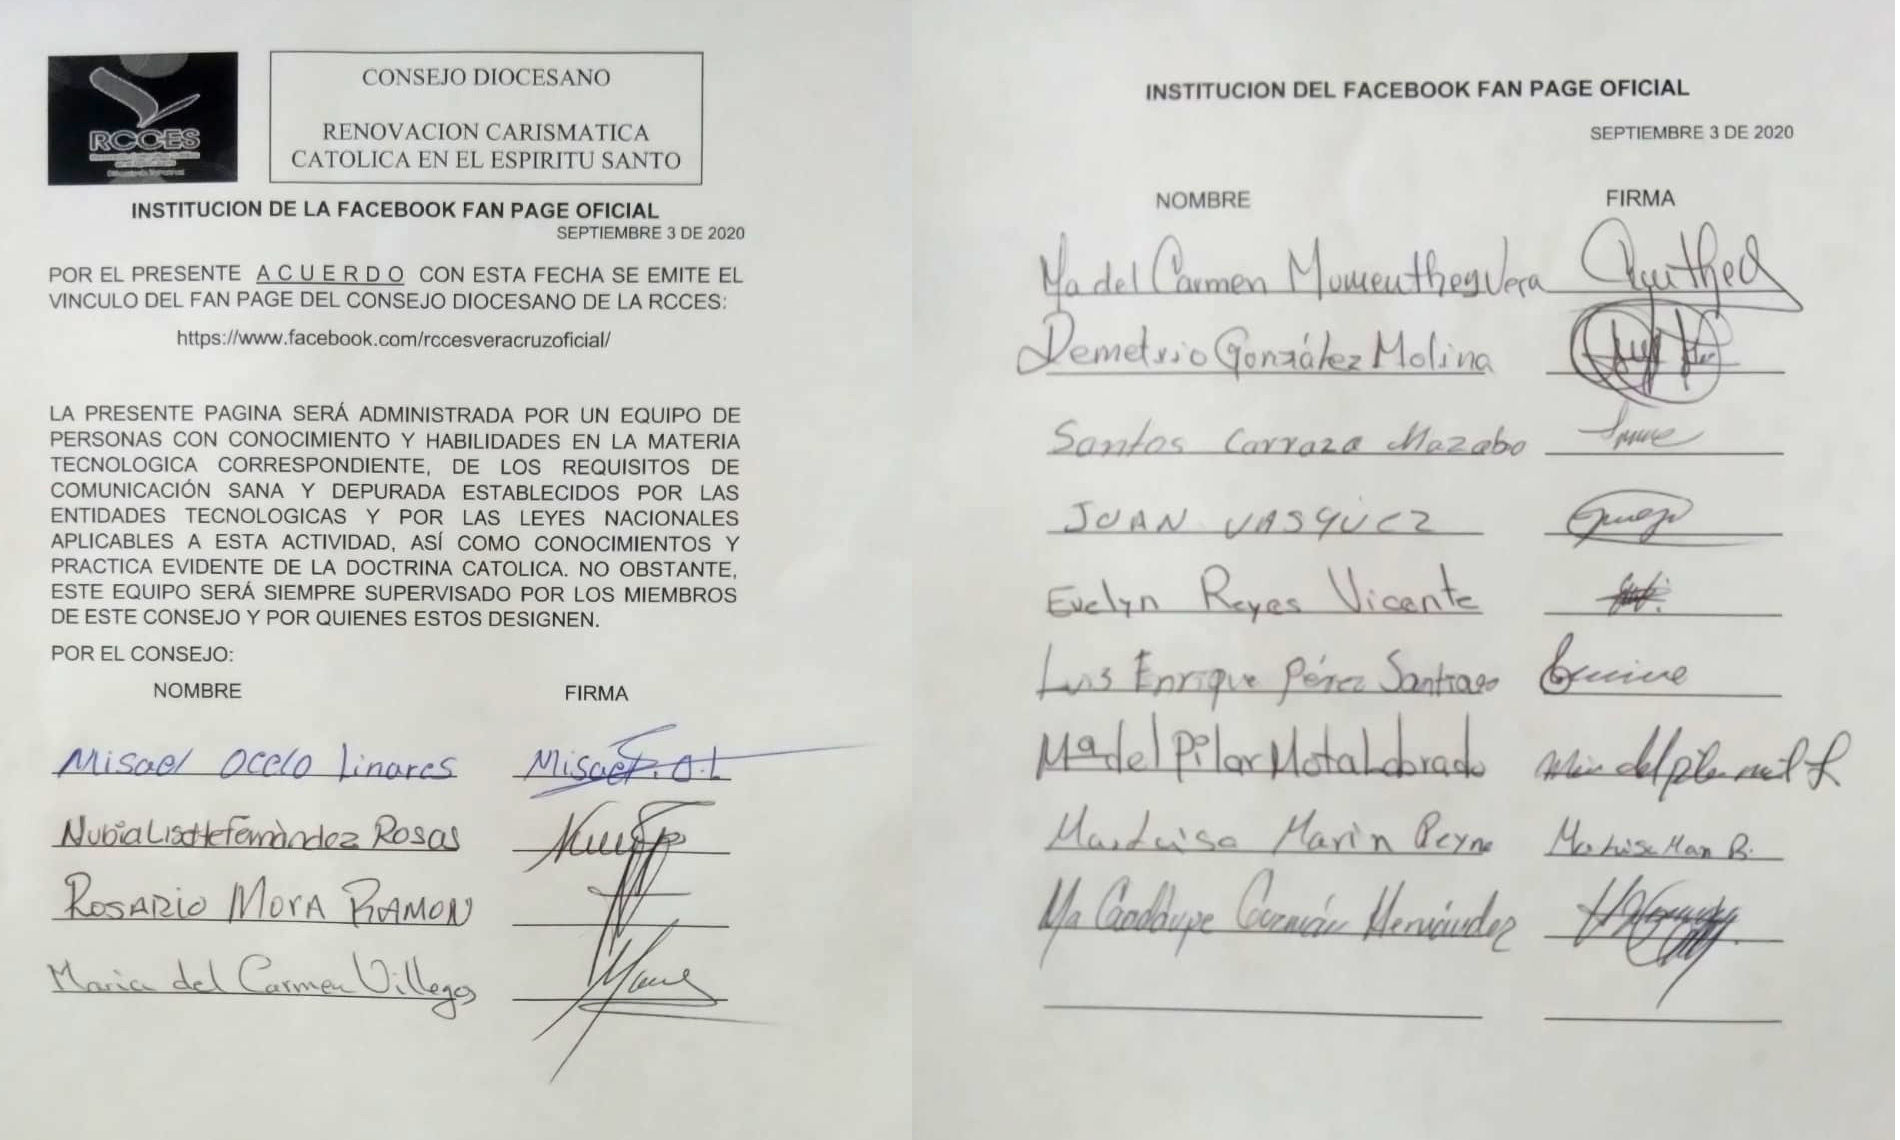 RCCES
CONSEJO DIOCESANO
RENOVACION CARISMATICA
CATOLICA EN EL ESPIRITU SANTO
INSTITUCION DE LA FACEBOOK FAN PAGE OFICIAL
SEPTIEMBRE 3 DE 2020
POR EL PRESENTE A C U E R D O CON ESTA FECHA SE EMITE EL
VINCULO DEL FAN PAGE DEL CONSEJO DIOCESANO DE LA RCCES:
https://www.facebook.com/rccesveracruzoficial/
LA PRESENTE PAGINA SERÁ ADMINISTRADA POR UN EQUIPO DE
PERSONAS CON CONOCIMIENTO Y HABILIDADES EN LA MATERIA
TECNOLOGICA CORRESPONDIENTE, DE LOS REQUISITOS DE
COMUNICACIÓN SANA Y DEPURADA ESTABLECIDOS POR LAS
ENTIDADES TECNOLOGICAS Y POR LAS LEYES NACIONALES
APLICABLES A ESTA ACTIVIDAD, ASÍ COMO CONOCIMIENTOS Y
PRACTICA EVIDENTE DE LA DOCTRINA CATOLICA. NO OBSTANTE,
ESTE EQUIPO SERÁ SIEMPRE SUPERVISADO POR LOS MIEMBROS
DE ESTE CONSEJO Y POR QUIENES ESTOS DESIGNEN.
POR EL CONSEJO:
NOMBRE FIRMA
Misael Ocelo Linares Misael O.L
Nubia Lisette Fernández Rosas
ROSARIO MORA RAMON
Maria del Carmen Villegas
INSTITUCION DEL FACEBOOK FAN PAGE OFICIAL
SEPTIEMBRE 3 DE 2020
NOMBRE FIRMA
Ma del Carmen Vera
Demetrio González Molina
Santos Carraza Mazabo
JUAN VASQUEZ
Evelyn Reyes Vicente
Luis Enrique Pérez Santiago
Ma del Pilar Mota Lobrado
Marin Reyna
Ma Guadalupe Guzmán Hernández